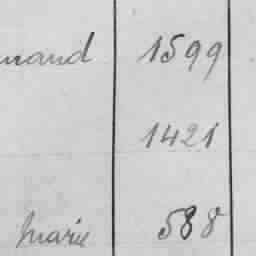 mand 1599
1421
Marie 588